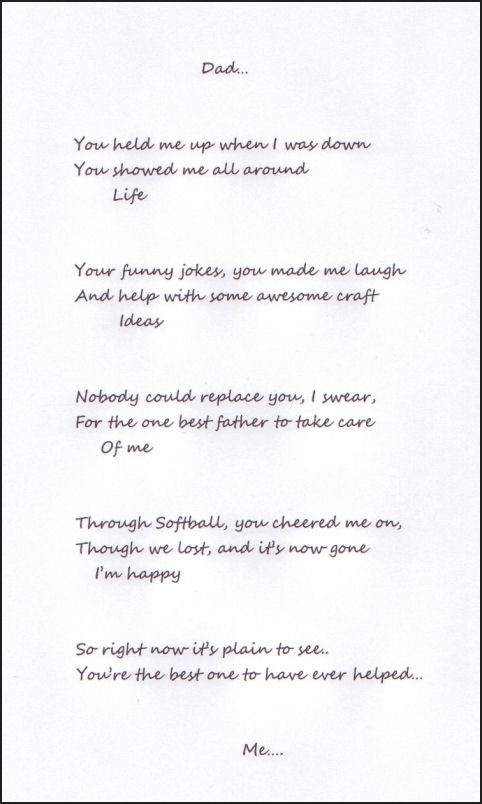 Dad...
You held me up when I was down
You showed me all around
Life
Your funny jokes, you made me laugh
And help with some awesome craft
Ideas
Nobody could replace you, I swear,
For the one best father to take care
Of me
Through Softball, you cheered me on,
Though we lost, and it's now gone
I'm happy
So right now it's plain to see..
You're the best one to have ever helped...
Me....